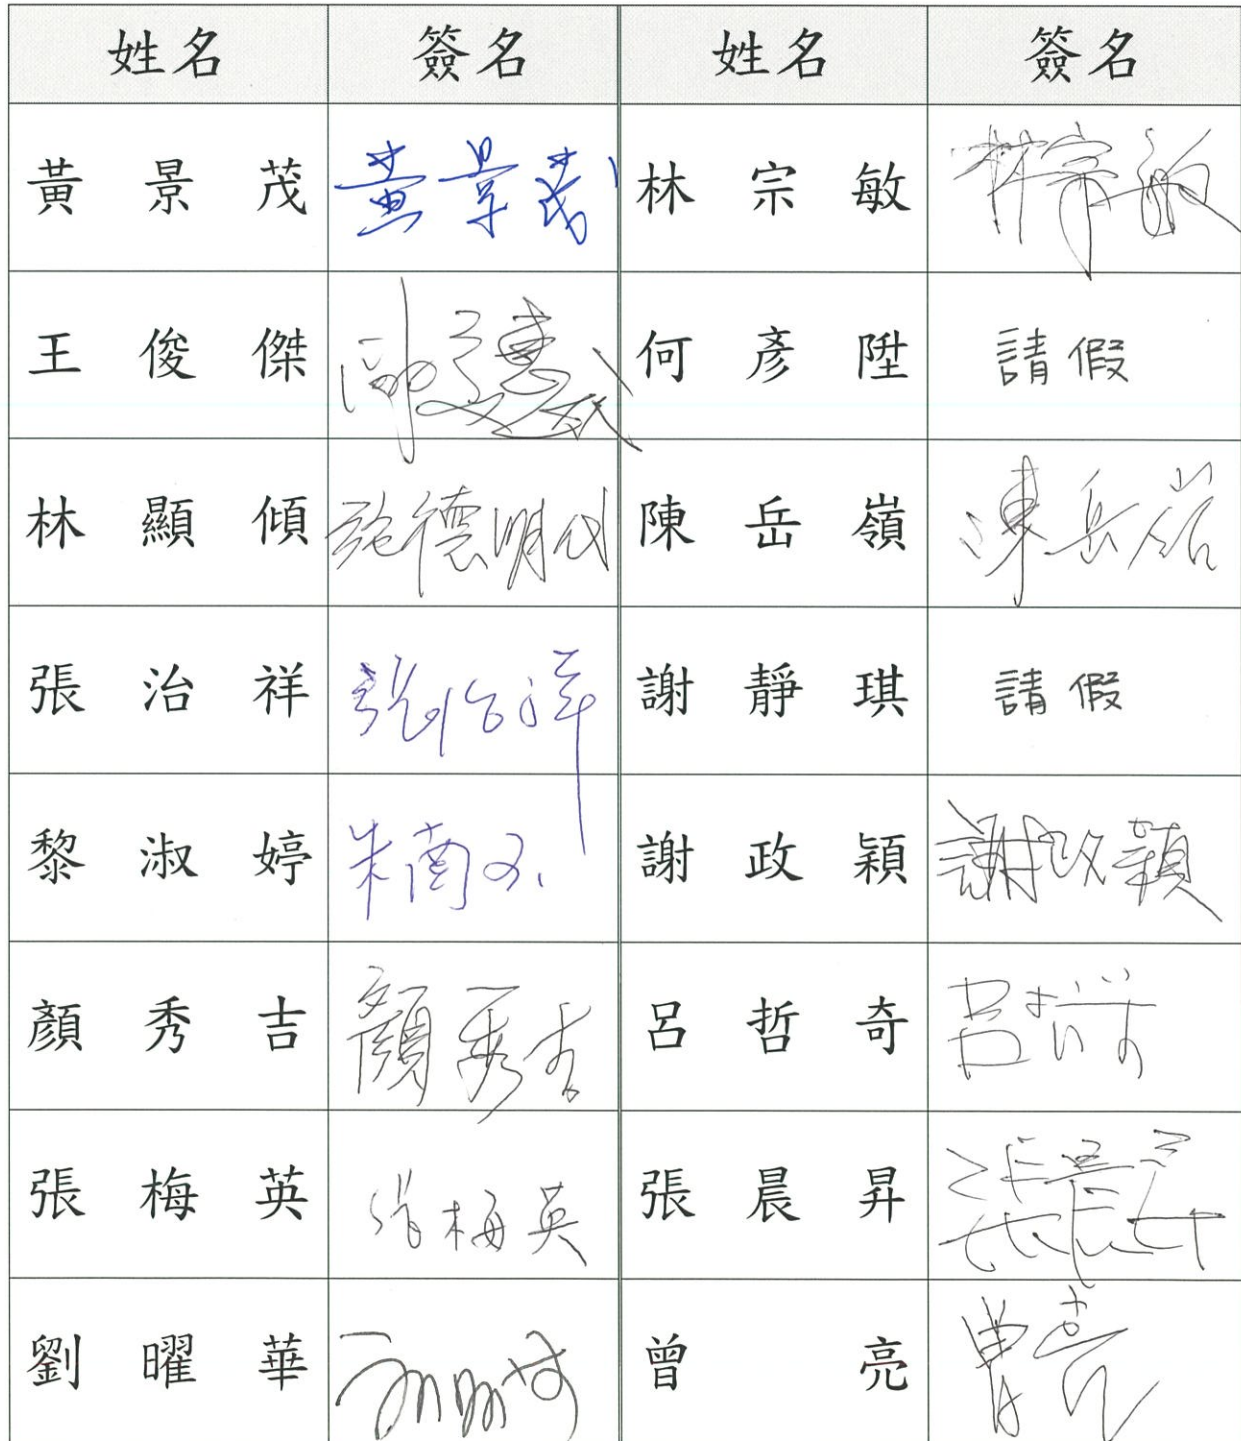 姓名 簽名 姓名 簽名
黃景茂 黃景茂 林宗敏 林宗敏
王俊傑 何彥陞 請假
林顯傾 施德明代 陳岳嶺 陳岳嶺
張治祥 張治祥 謝靜琪 請假
黎淑婷 謝政穎 謝政穎
顏秀吉 顏秀吉 呂哲奇 呂哲奇
張梅英 張梅英 張晨昇 張晨昇
劉曜華 劉曜華 曾亮 曾亮